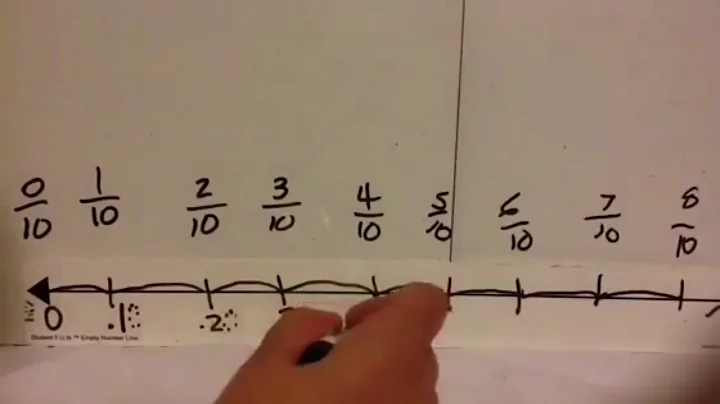 0/10 1/10 2/10 3/10 4/10 5/10 6/10 7/10 8/10
0 .1 .2
Student F.U.N.™ Empty Number Line